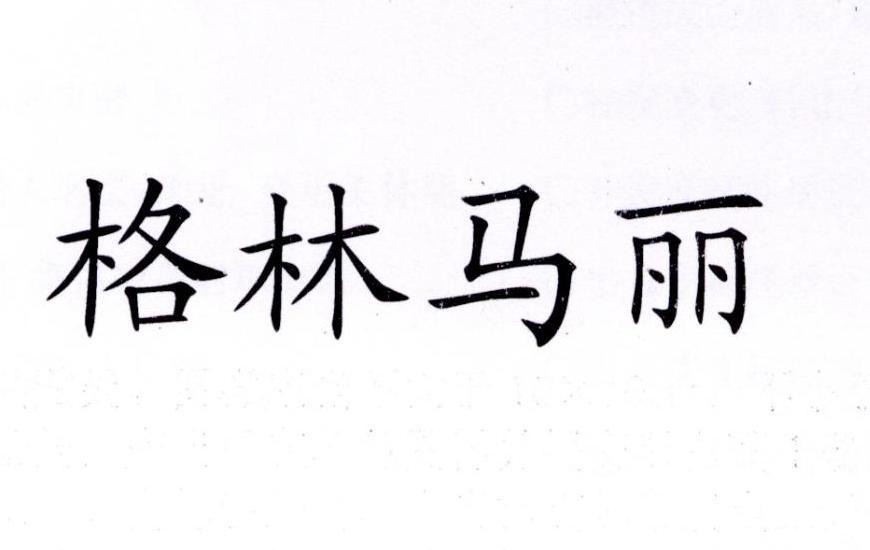 格林马丽